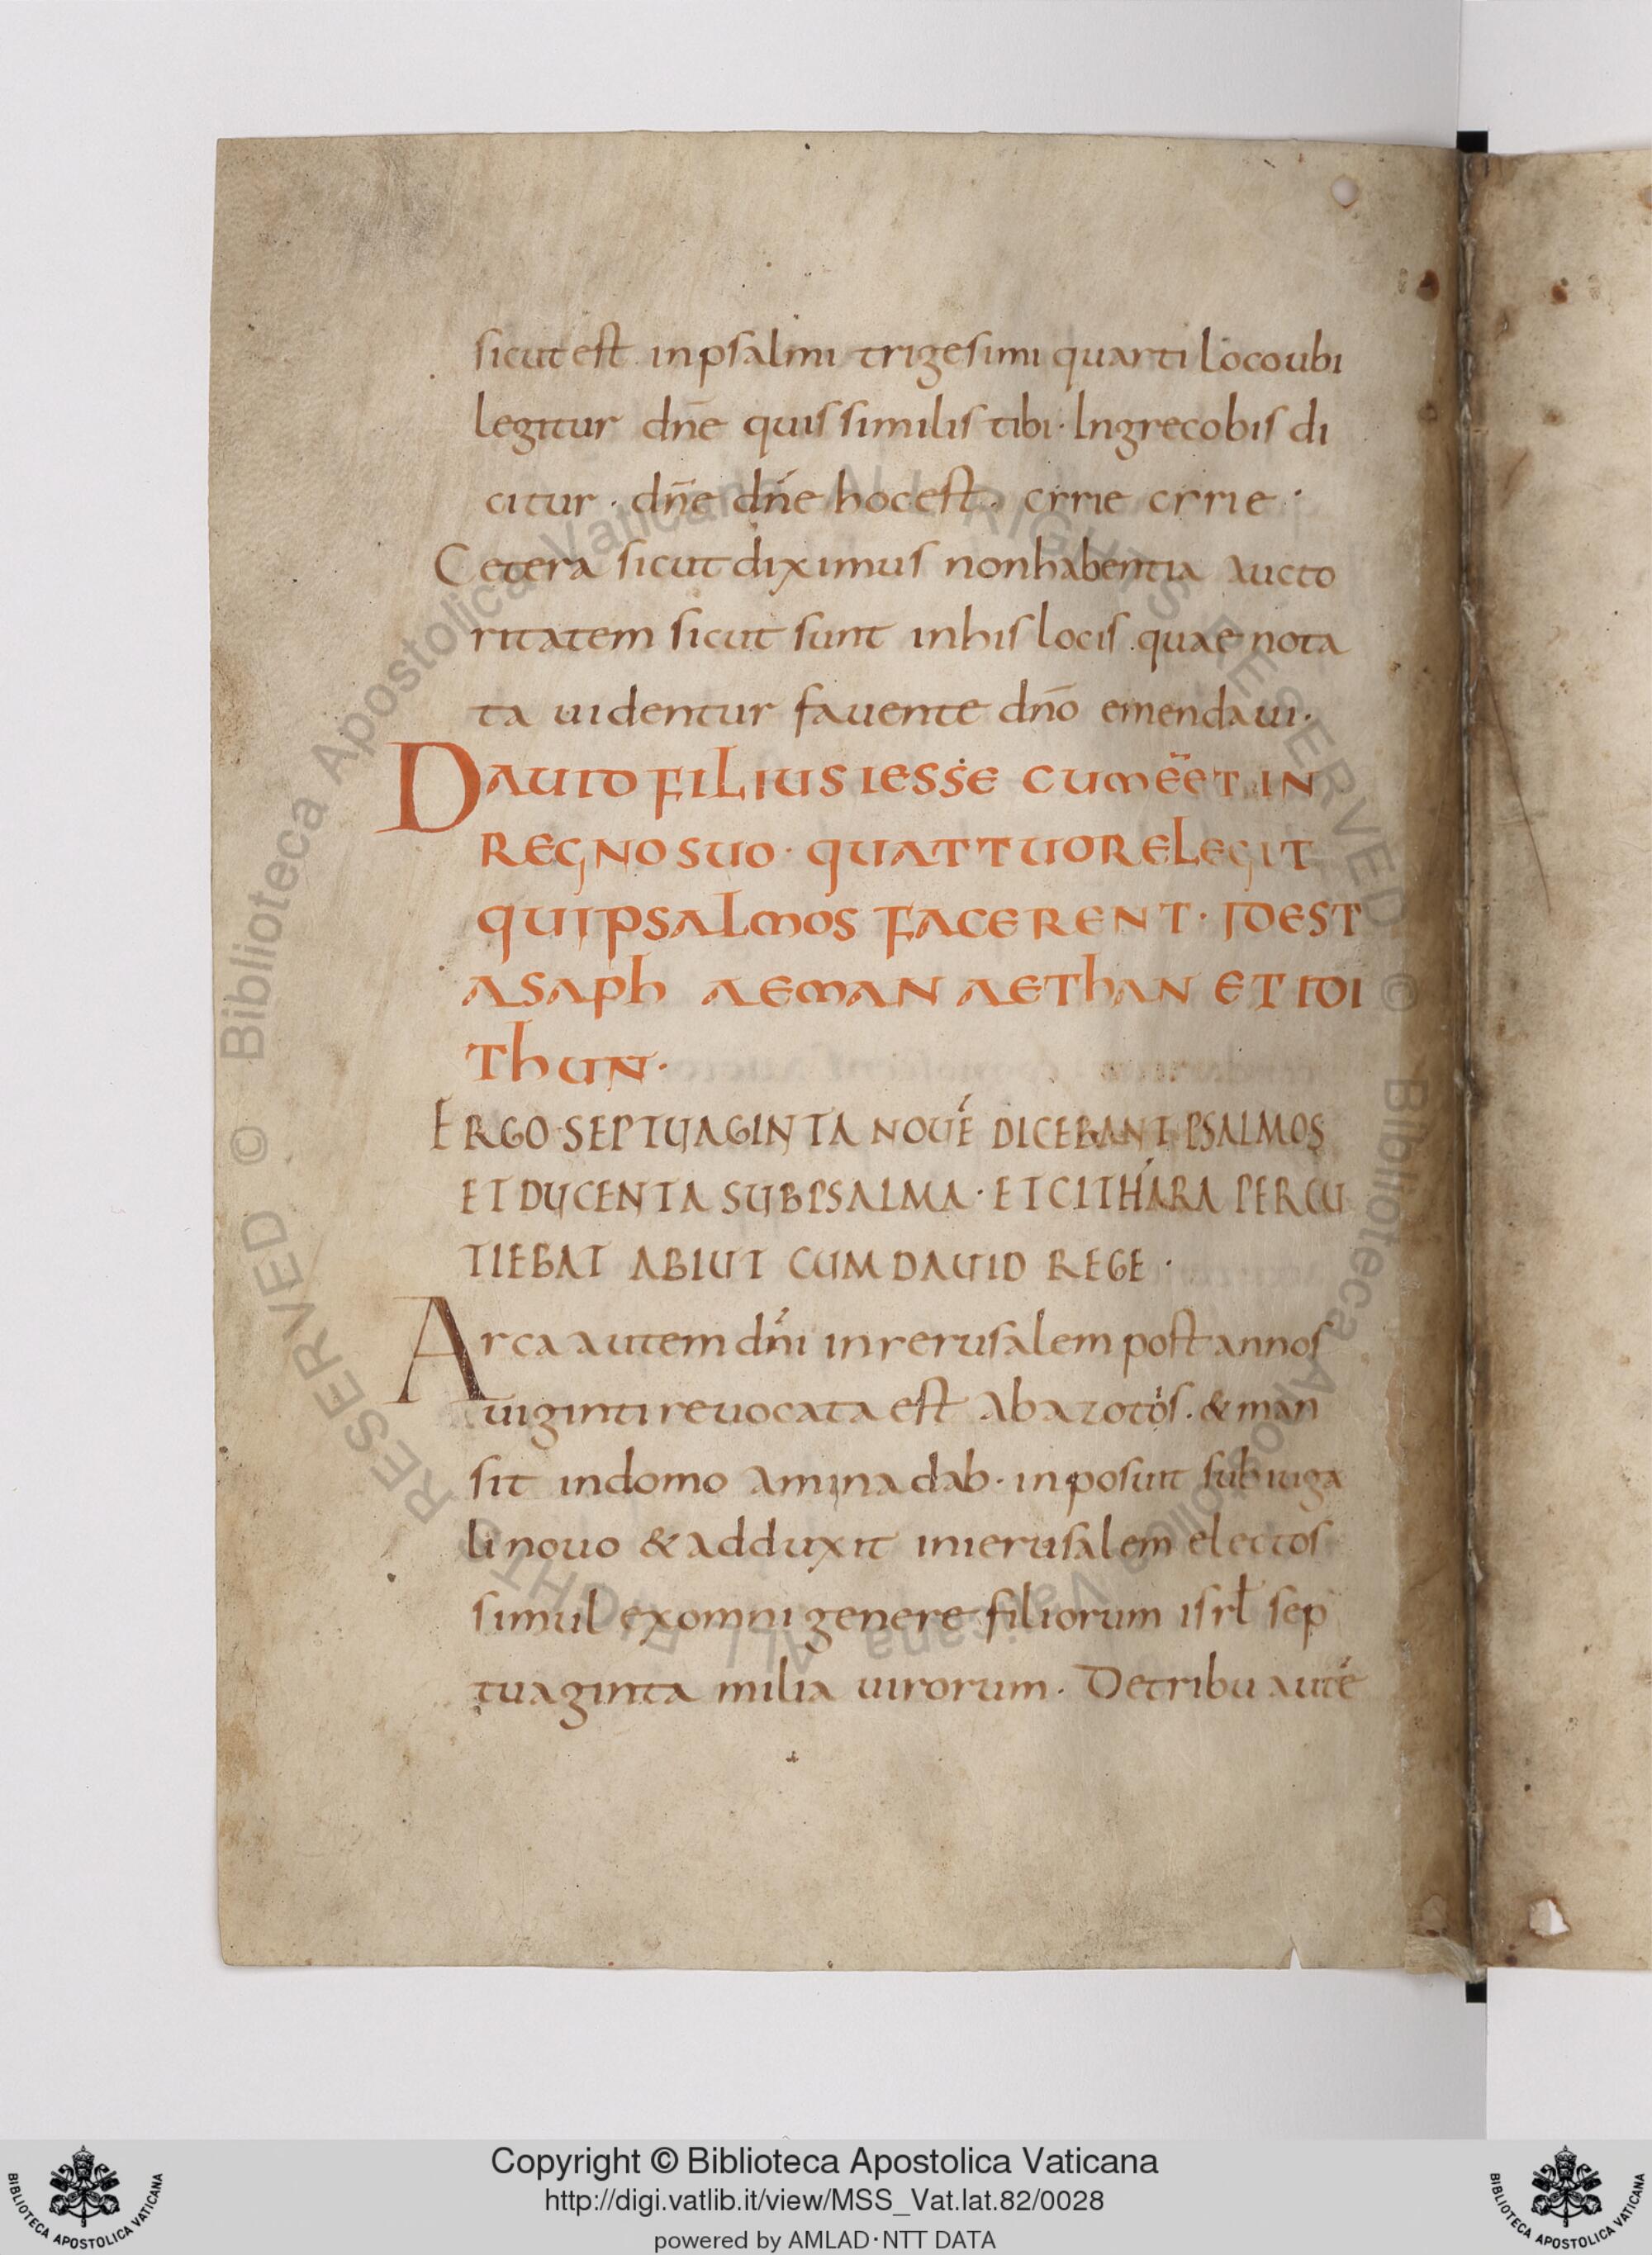 sicut est in psalmi trigesimi quarti loco ubi
legitur dn̄e quis similis tibi · In greco bis di
citur · dn̄e dn̄e hoc est · crrie crrie ·
Cetera sicut diximus non habentia aucto
ritatem sicut sunt in his locis quae nota
ta uidentur fauente dn̄o emendaui ·
DAUID FILIUS IESSE CUM EĒT IN
REGNO SUO · QUATTUOR ELEGIT
QUI PSALMOS FACERENT · IDEST
ASAPH AEMAN AETHAN ET IDI
THUN ·
ERGO SEPTUAGINTA NOUE´ DICEBANT PSALMOS
ET DUCENTA SUBPSALMA · ET CITHARA PERCU
TIEBAT ABIUT CUM DAUID REGE ·
Arca autem dn̄i in rerusalem post annos
uiginti reuocata est ab azotos · & man
sit in domo aminadab · inposuit subiuga
li nouo & adduxit in ierusalem electos
simul ex omni genere filiorum isrł sep
tuaginta milia uirorum · De tribu aute´
Copyright © Biblioteca Apostolica Vaticana
http://digi.vatlib.it/view/MSS_Vat.lat.82/0028
powered by AMLAD·NTT DATA
BIBLIOTECA APOSTOLICA VATICANA
BIBLIOTECA APOSTOLICA VATICANA
© Biblioteca Apostolica Vaticana ALL RIGHTS RESERVED
© Biblioteca Apostolica Vaticana ALL RIGHTS RESERVED